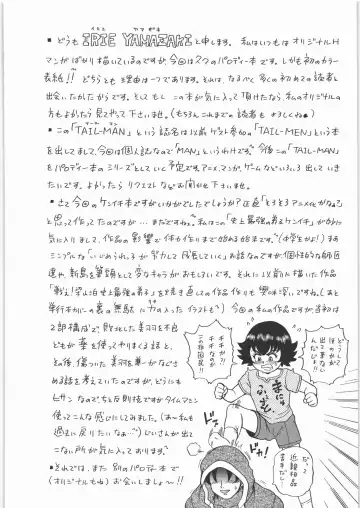 ■どうも IRIE YAMAZAKI と申します。私はいつもはオリジナルH
マンガばかり描いているのですが、今回は2つのパロディー本です。しかも初のカラー
表紙!! どちらとも理由は一つであります。それは、なるべく多くの初めての読者と
出会いたかったからです。そしてもしこの本が気に入って頂けたなら、私のオリジナルの
方もよかったら見てやって下さいませ。(もちろんこれまでの読者もよろしくね)
■この「TAIL-MAN」という誌名は以前ゲスト参加の「TAIL-MEN」という本
を出しまして、今回は個人誌なので「MAN」というわけです。今後この「TAIL-MAN」
をパロディー本のシリーズとしていく予定です。アニメ、マンガ、ゲームなどいろいろ出していき
たいです。よかったらリクエストなどお聞かせ下さいませ。
■さて今回のケンイチですがいかがでしたでしょうか?正直「とうとうアニメ化かなぁ?」
と思って作ったのですが…まだですねぇ。私はこの「史上最強の弟子ケンイチ」がかなり
気に入りまして、作品の影響で体力作りまで始める始末です。
シンプルな「いじめられっ子が努力して成長していく」お話なのですが個性的な師匠
達や、新島を筆頭として変なキャラがおもしろいです。それに以前に描いた作品
「戦え!梁山泊 史上最強の弟子」を続き直しての作品作りも興味深いですね。(あと
単行本カバーの裏の無駄に力の入ったイラストも)今回の私の作品ですが当初は
2部構成で、敗北した美羽を不良
どもが拳を使ってやりまくる話と、
その後、傷ついた美羽を
さめる話を考えていたのですが、どうにも
ヒサンなので、ちょっと反則技ですがタイムマシン
使ってこんな感じにしてみました。(あ〜私も
過去に戻りたいなぁ〜)じいさんが出て
こない所が気に入っております。
■それでは、また別のパロディー本で
(オリジナルもね)お会いしましょ〜!!
どうして
僕のが
出て来ない
んだよ!!
ギギがウリ
なのが
この相国品!!
だって
近親相姦